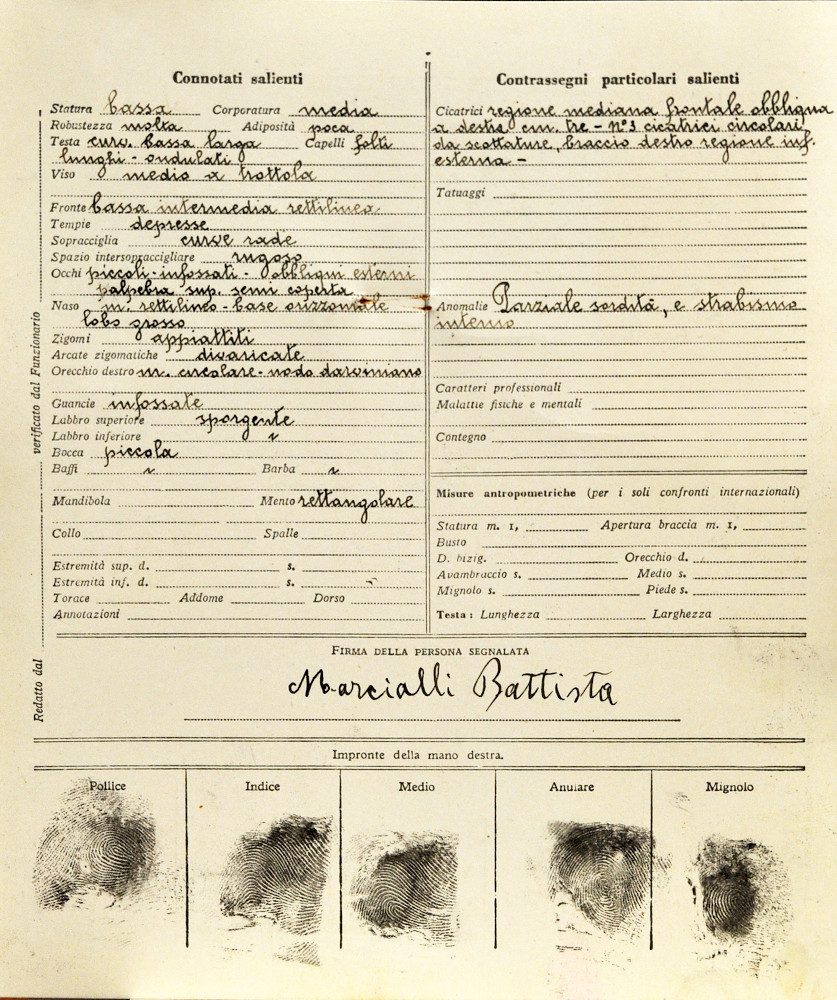 Connotati salienti
Statura bassa Corporatura media
Robustezza molta Adiposità poca
Testa curv. bassa larga Capelli folti
lunghi - ondulati
Viso medio a trottola
Fronte bassa intermedia rettilinea
Tempie depresse
Sopracciglia curve rade
Spazio intersopraccigliare rugoso
Occhi piccoli - infossati - obbliqui esterni
palpebra sup. semi coperta
Naso m. rettilineo - base orizzontale
lobo grosso
Zigomi appiattiti
Arcate zigomatiche divaricate
Orecchio destro m. circolare - nodo darwiniano
Guancie infossate
Labbro superiore sporgente
Labbro inferiore "
Bocca piccola
Baffi " Barba "
Mandibola Mento rettangolare
Collo Spalle
Estremità sup. d. s.
Estremità inf. d. s.
Torace Addome Dorso
Annotazioni
Contrassegni particolari salienti
Cicatrici regione mediana frontale obbliqua
a destra cm. tre - N° 3 cicatrici circolari
da scottature, braccio destro regione inf.
esterna -
Tatuaggi
Anomalie Parziale sordità, e strabismo
interno
Caratteri professionali
Malattie fisiche e mentali
Contegno
Misure antropometriche (per i soli confronti internazionali)
Statura m. 1, Apertura braccia m. 1,
Busto
D. bizig. Orecchio d.
Avambraccio s. Medio s.
Mignolo s. Piede s.
Testa: Lunghezza Larghezza
Redatto dal verificato dal Funzionario
FIRMA DELLA PERSONA SEGNALATA
Marcialli Battista
Impronte della mano destra.
Pollice Indice Medio Anulare Mignolo